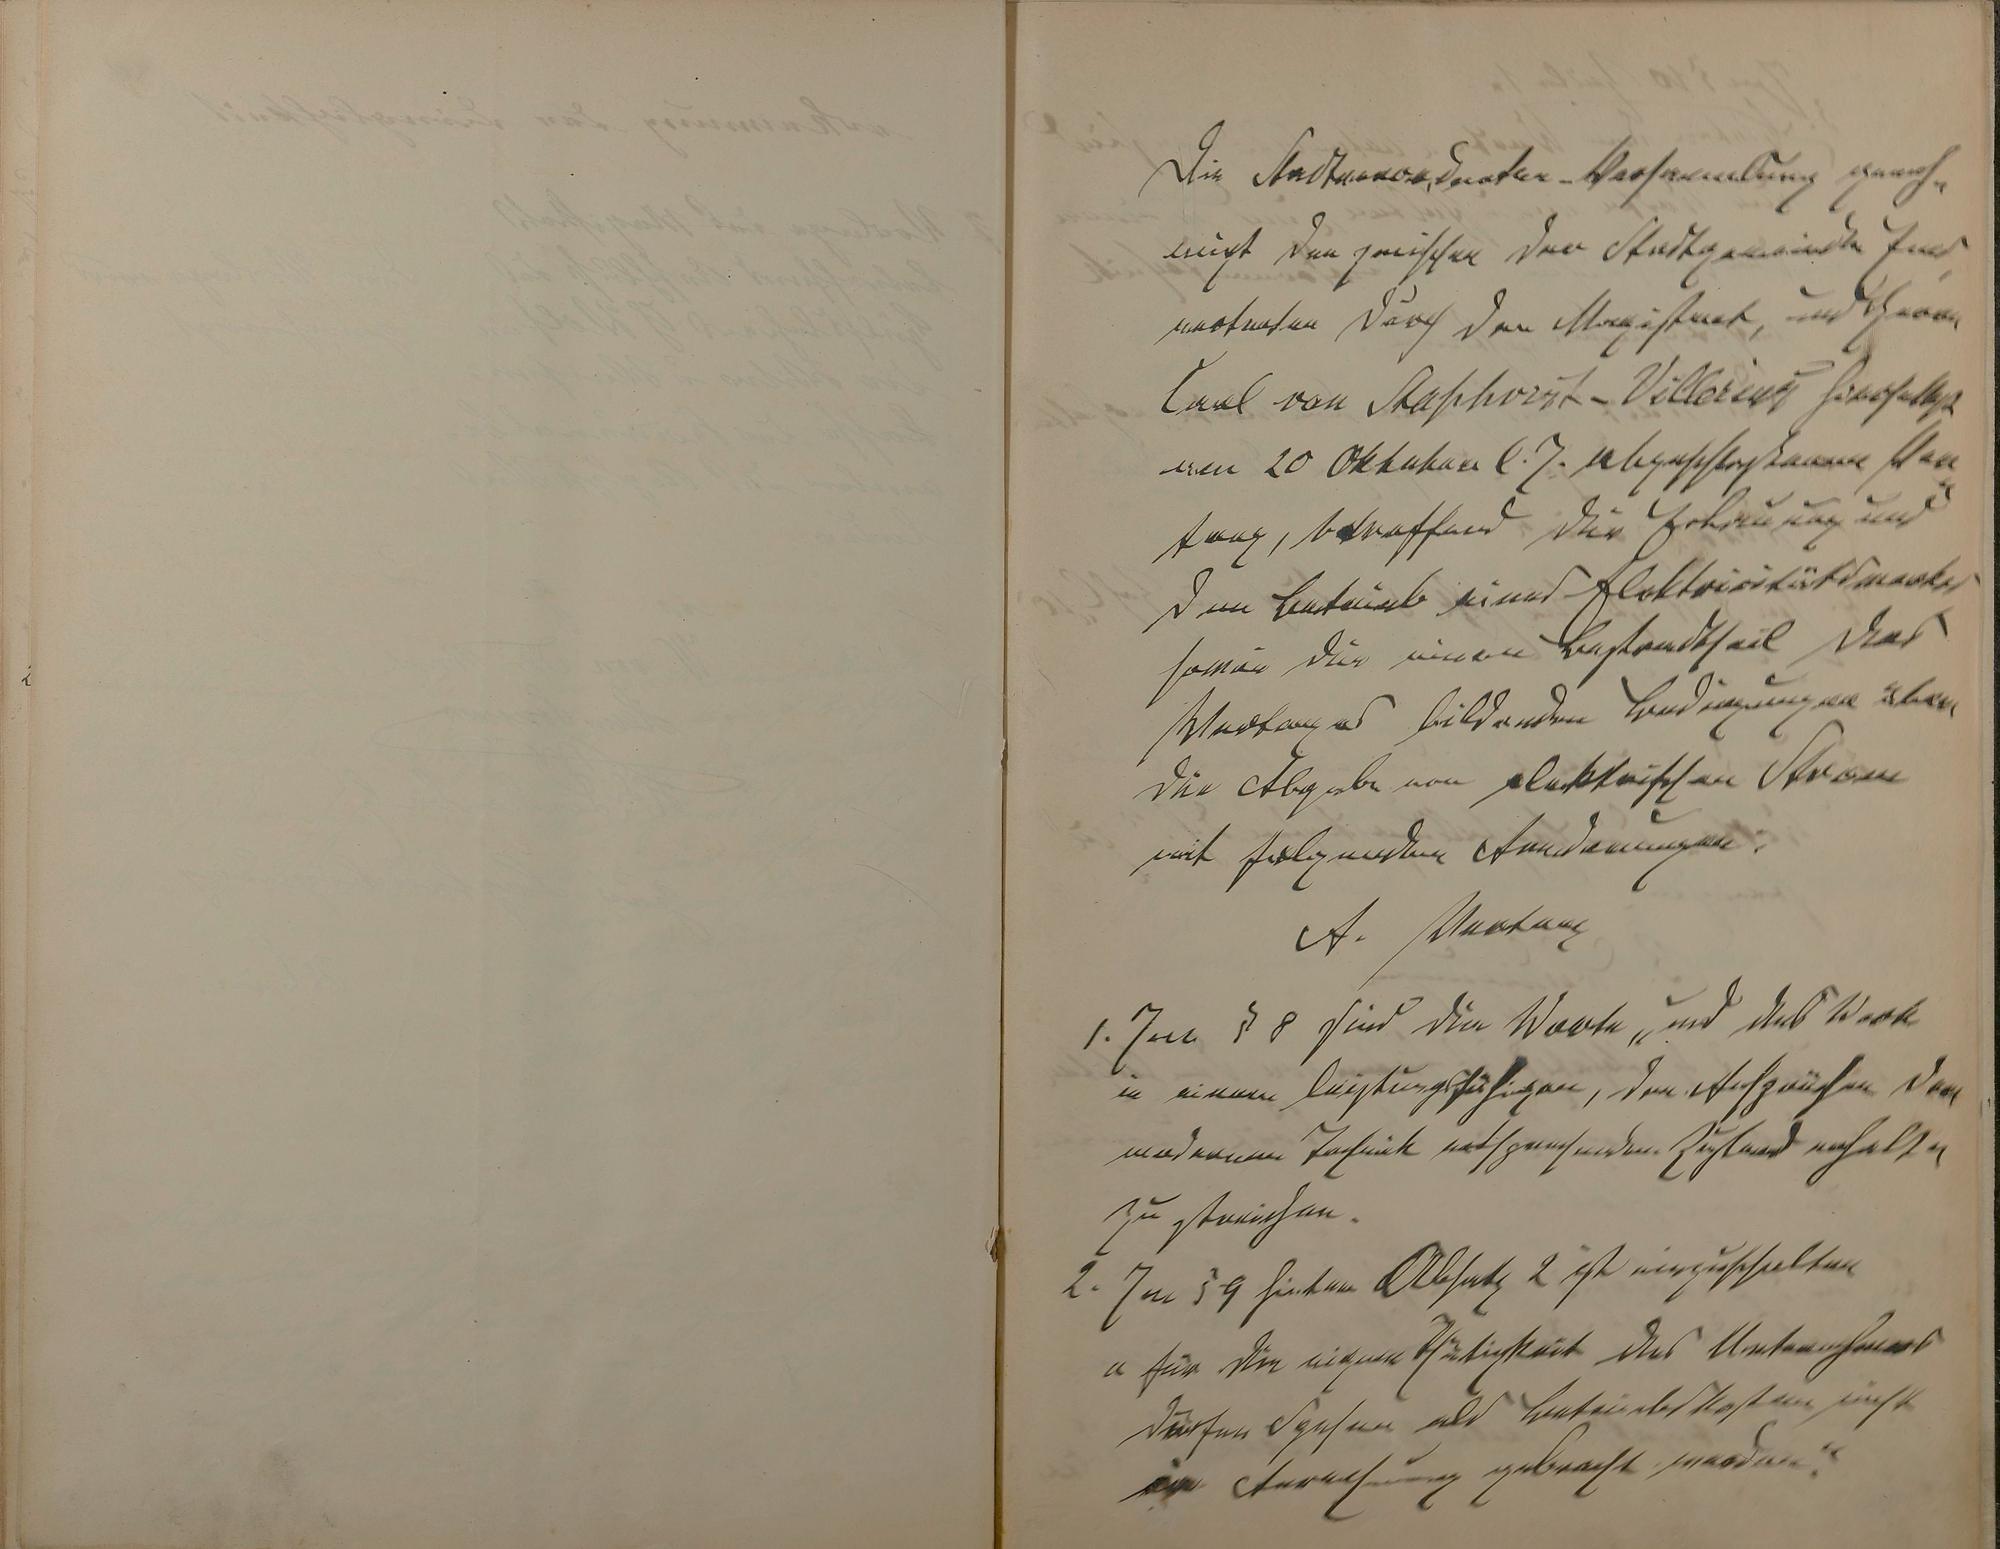 Die Stadtverordneten-Versammlung geneh-
migt den zwischen der Stadtgemeinde Ems
vertreten durch den Magistrat, und Herrn
Carl von Staphorst-Villerius hierselbst
vom 20 Oktober l. J. abgeschlossenen Ver
trag, betreffend die Erbauung und
den Betrieb eines Elektricitätswerkes
sowie die einen Bestandtheil des
Vertrages bildenden Bedingungen über
die Abgabe von elektrischen Strom
mit folgenden Aenderungen:
A. Vertrag
1. Im § 8 sind die Worte „und das Werk
in einem leistungsfähigen, den Ansprüchen der
modernen Technik entsprechenden Zustand erhalten
zu streichen.
2. Im § 9 hinter Absatz 2 ist einzuschalten
a für die eigene Thätigkeit des Unternehmers
dürfen Spesen als Betriebskosten nicht
in Anrechnung gebracht werden."